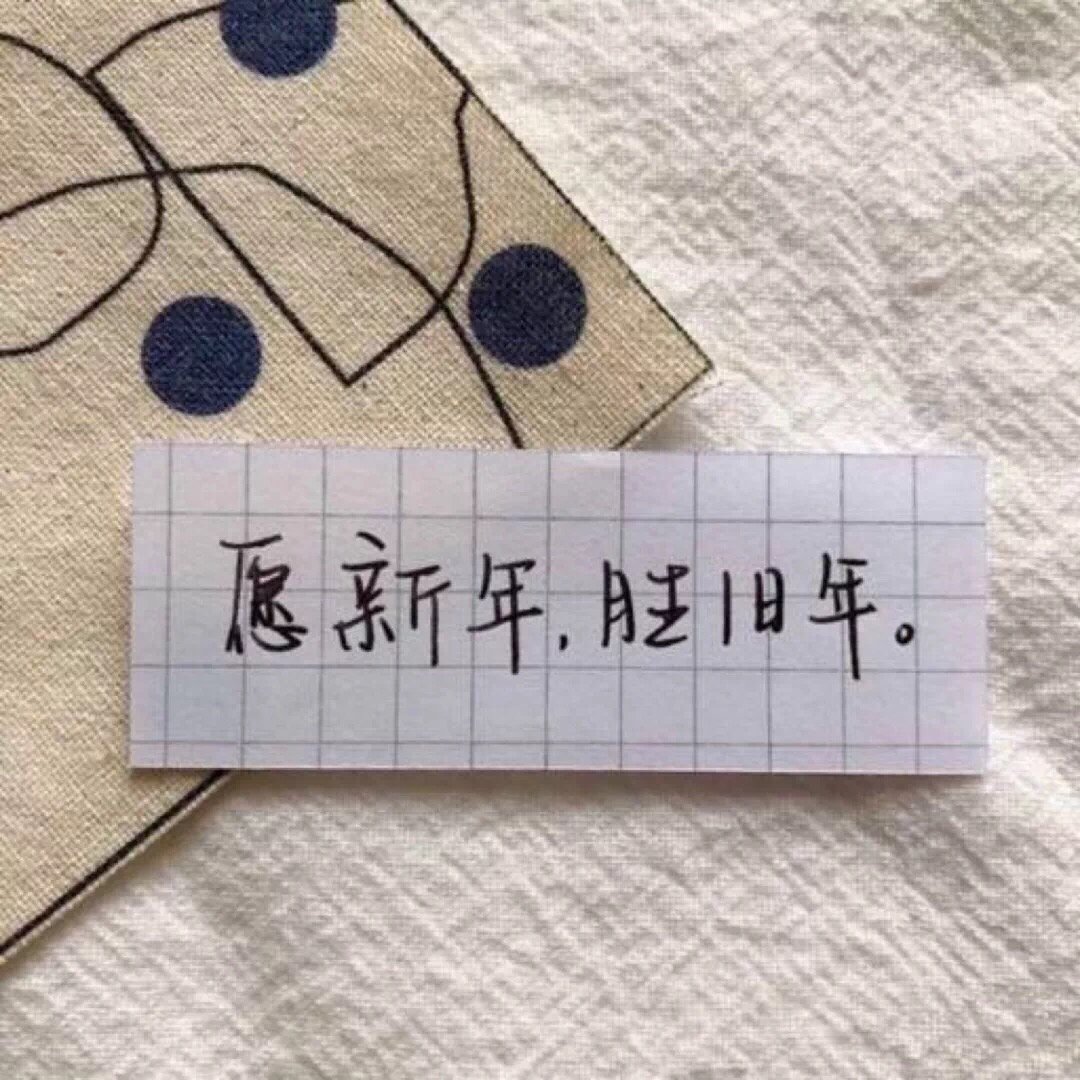 愿新年,胜旧年。